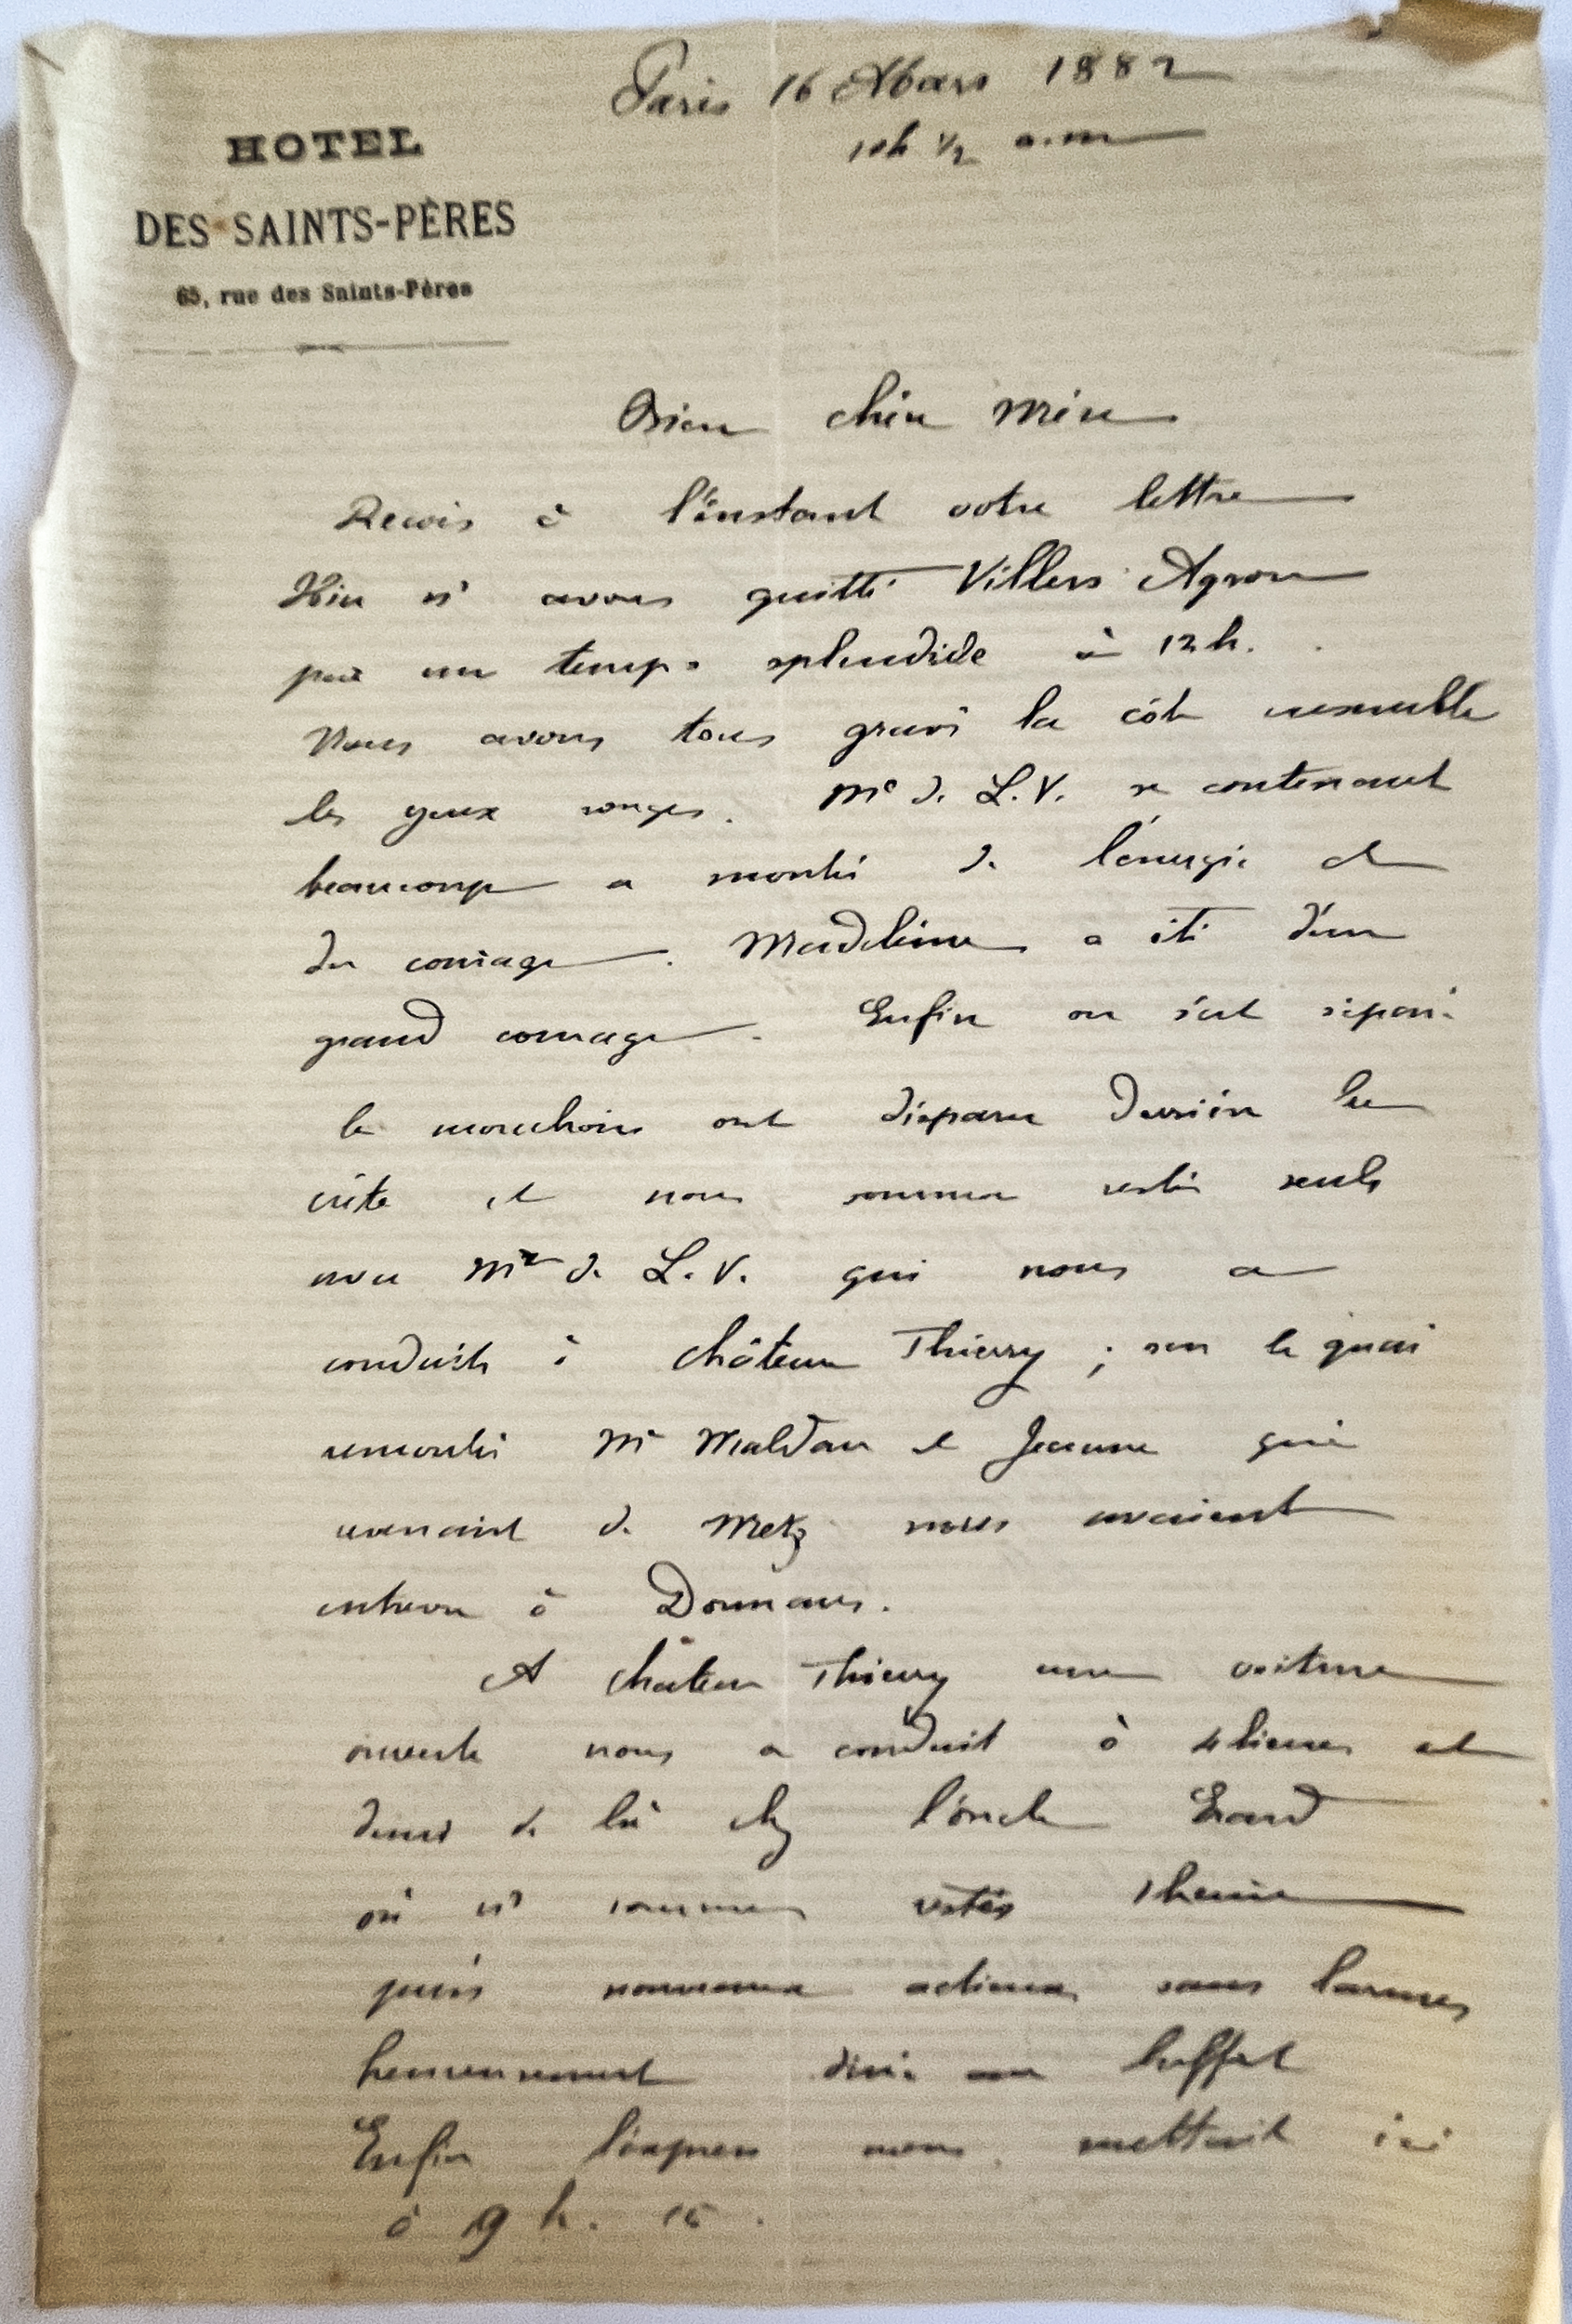 Paris 16 Mars 1882
10h ½ a.m
HOTEL
DES SAINTS-PÈRES
65, rue des Saints-Pères
Bien chère Mère
Recois à l'instant votre lettre
Hier ns avons quitté Villers Agron
par un temps splendide à 12 h.
Nous avons tous gravi la côte ensemble
les yeux rouges. Me de L.V. se contenant
beaucoup a montré de l'énergie et
du courage. Madeleine a été d'un
grand courage. Enfin on s'est séparé
les mouchoirs ont disparu derrière la
crête et nous sommes restés seuls
avec Mr de L.V. qui nous a
conduits à Château Thierry ; sur le quai
rencontré Mr Maldan et Jeanne qui
revenant de Metz nous avaient
entrevu à Dormans.
A Château Thierry une voiture
ouverte nous a conduit à 4 lieues et
demi de là chez l'oncle Erard
où ns sommes restés 1 heure
puis nouveaux adieux sans larmes
heureusement diné au buffet
Enfin l'express nous mettait ici
à 9 h. 15.